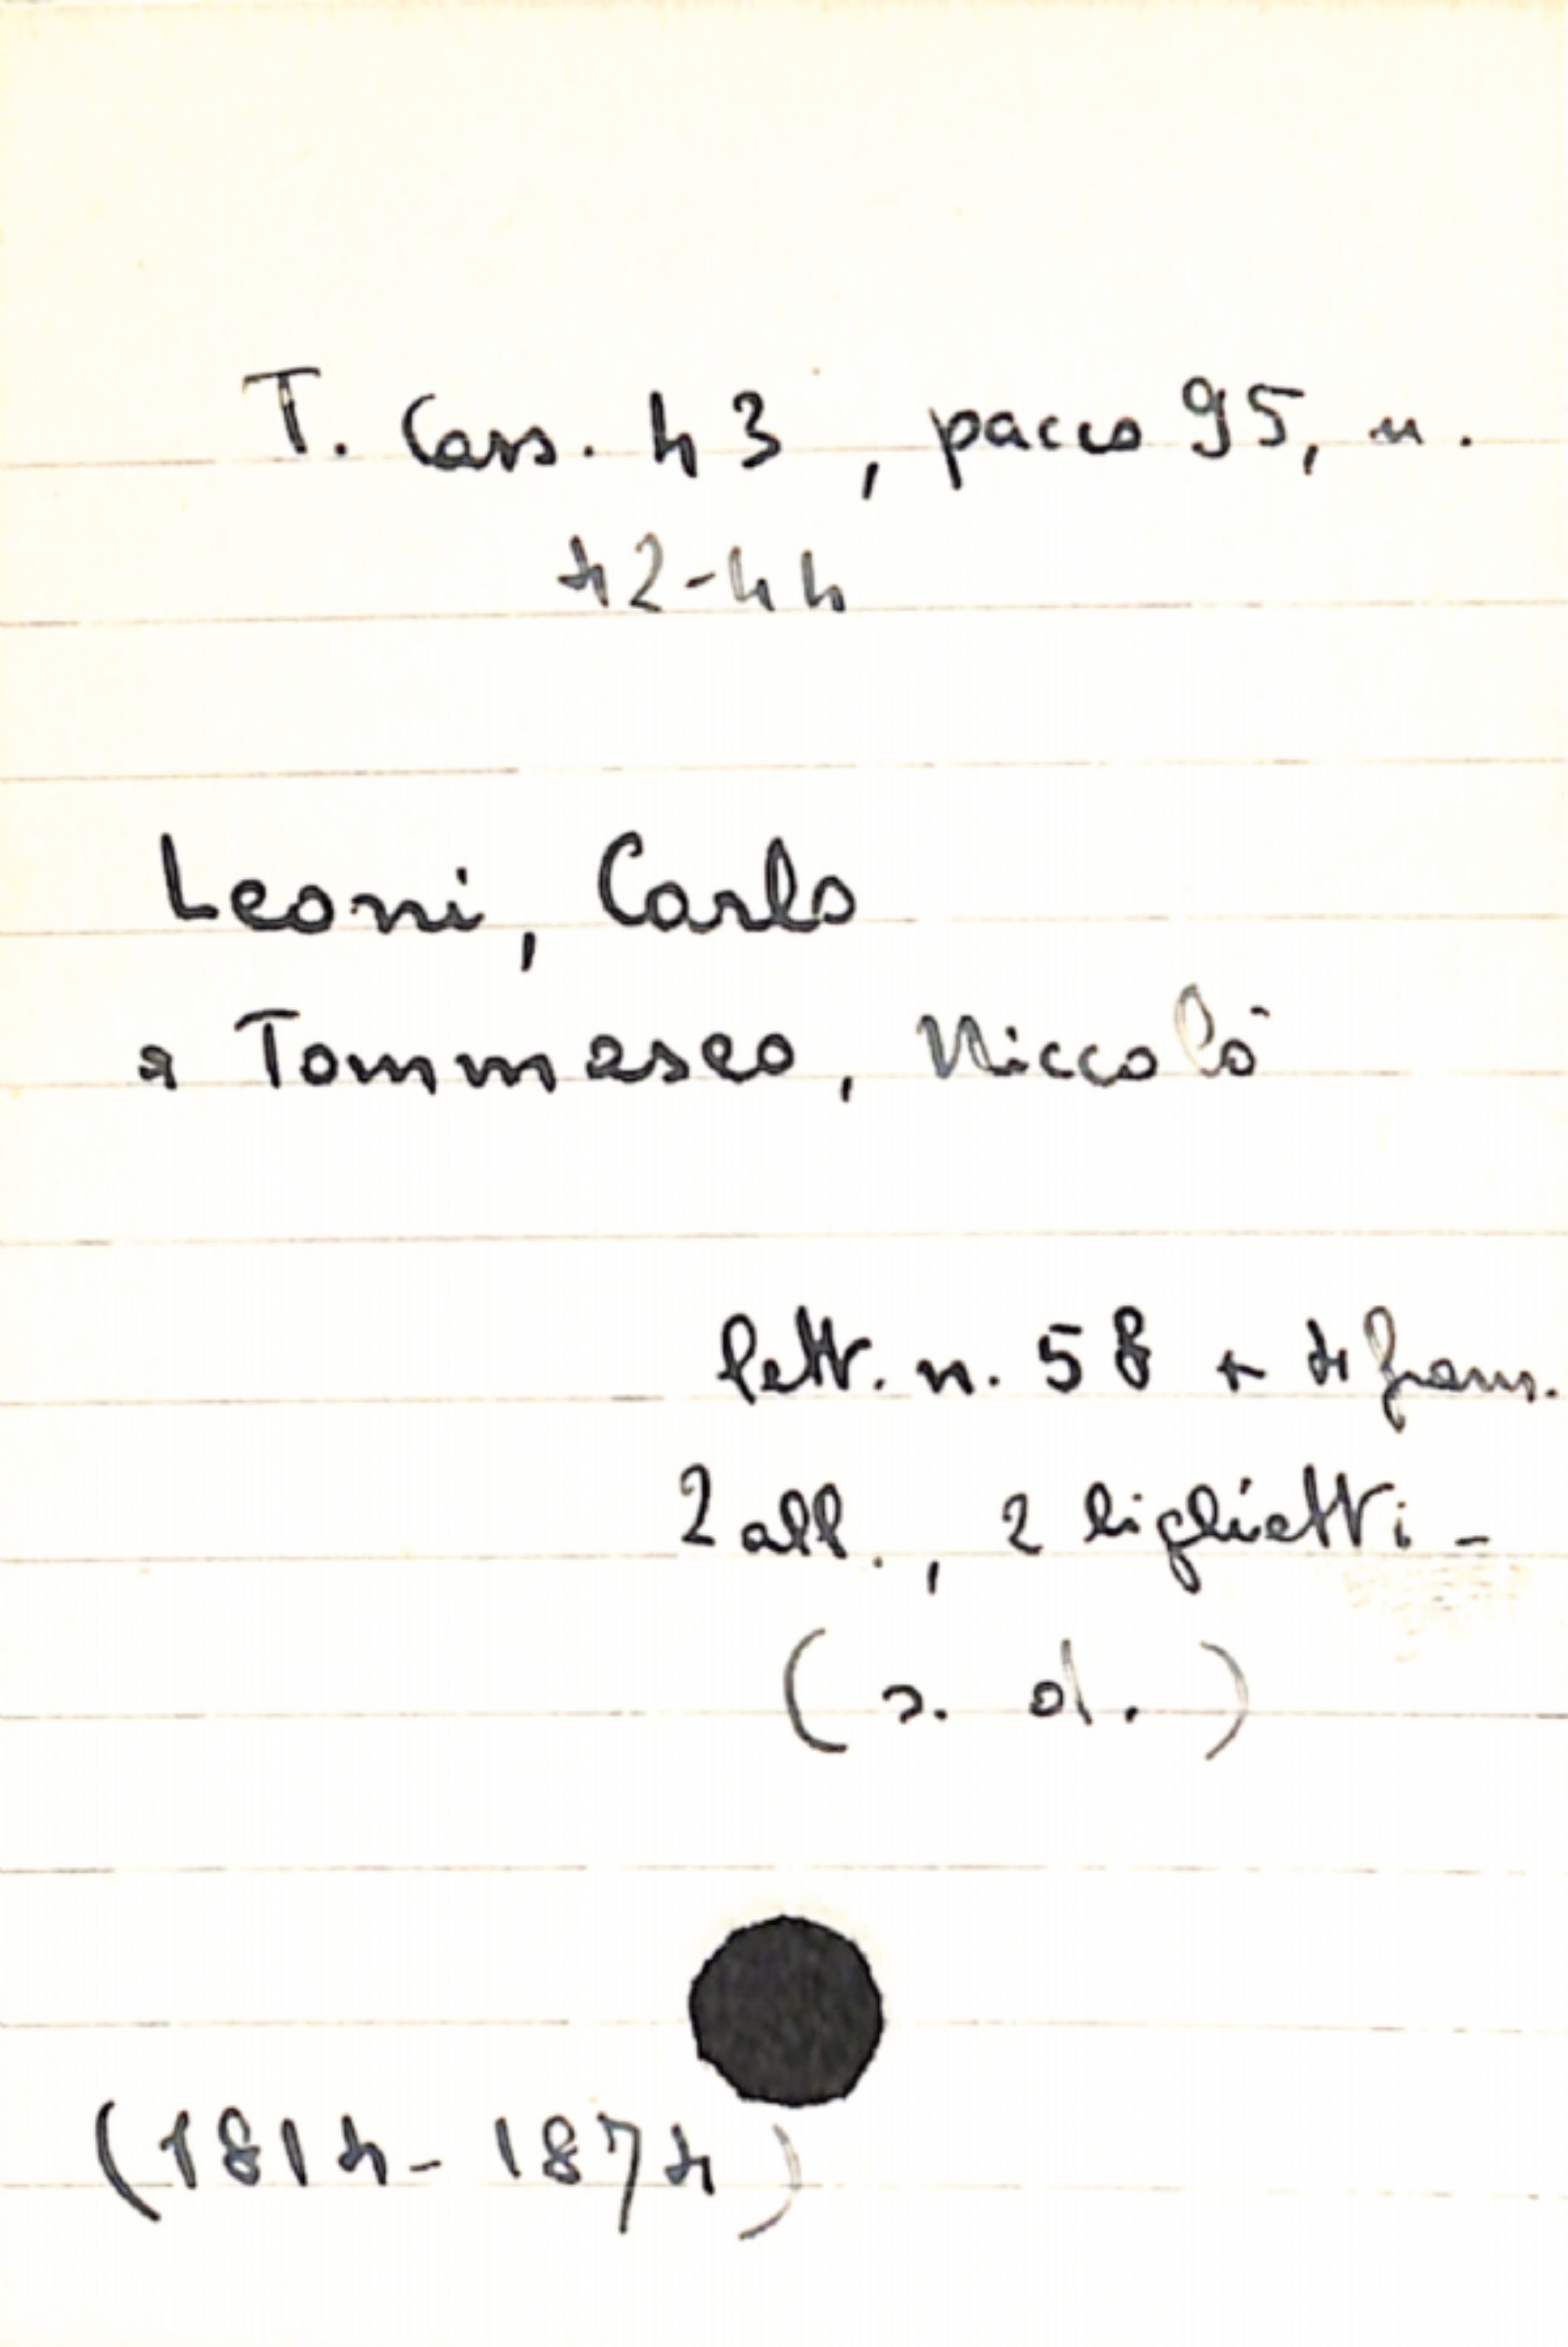 T. Cass. 43, pacco 95, n.
42-44
Leoni, Carlo
a Tommaseo, Niccolò
lett. n. 58 + 4 fram.
2 all., 2 biglietti -
(s. d.)
(1814-1874)